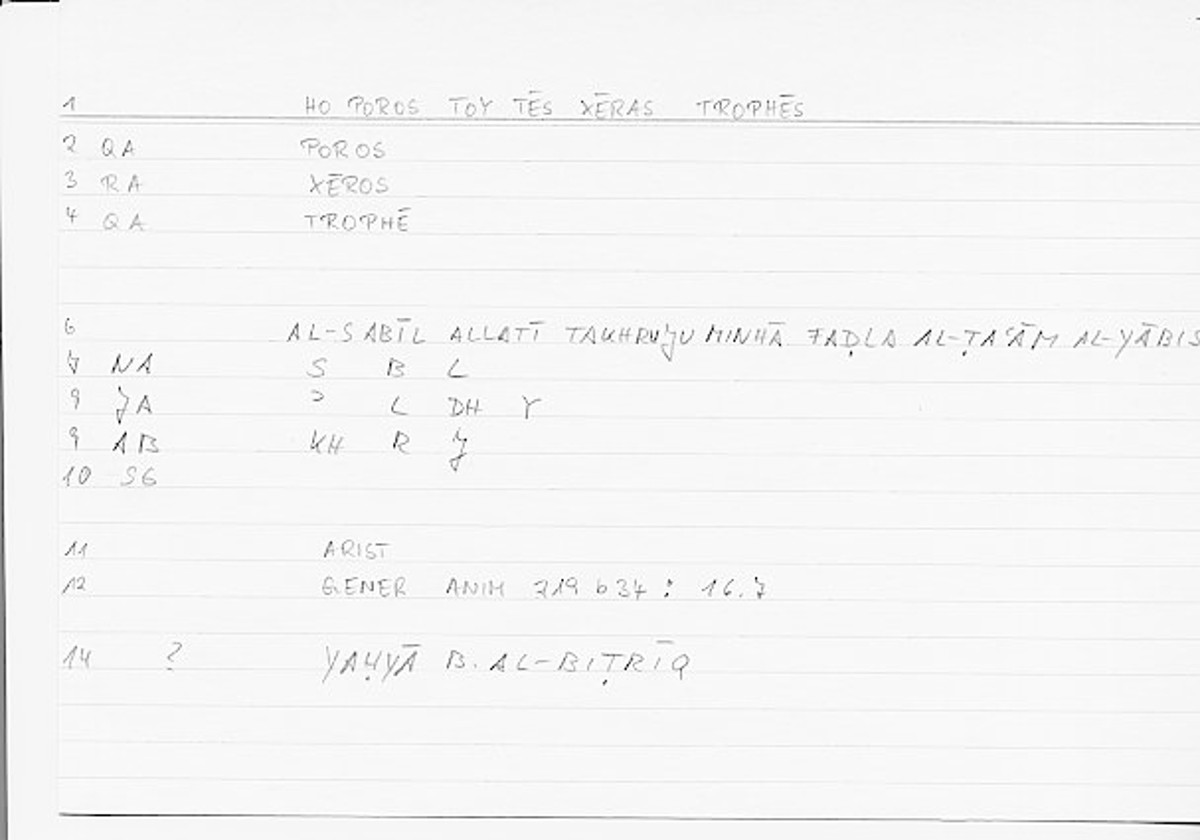 1 HO POROS TOY TĒS XĒRAS TROPHĒS
2 QA POROS
3 RA XĒROS
4 QA TROPHĒ
6 AL-SABĪL ALLATĪ TAKHRUJU MINHĀ FAḌLA AL-ṬAʿĀM AL-YĀBIS
7 NA S B L
9 JA ʾ L DH Y
9 AB KH R J
10 SG
11 ARIST
12 GENER ANIM 719 b 34 : 16.7
14 ? YAḤYĀ B. AL-BIṬRĪQ